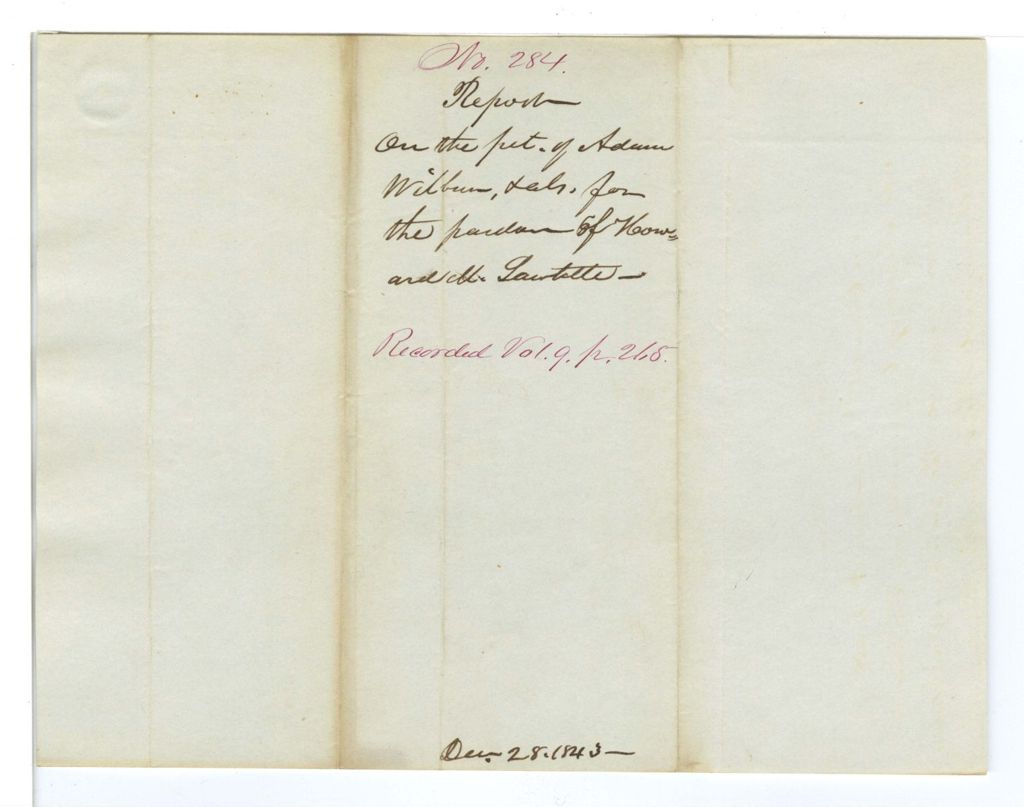 No. 284.
Report
On the pet. of Adam
Wilbur, & als. for
the pardon of How=
ard M. Sawtelle
Recorded Vol. 9. p. 265.
Dec. 28. 1843